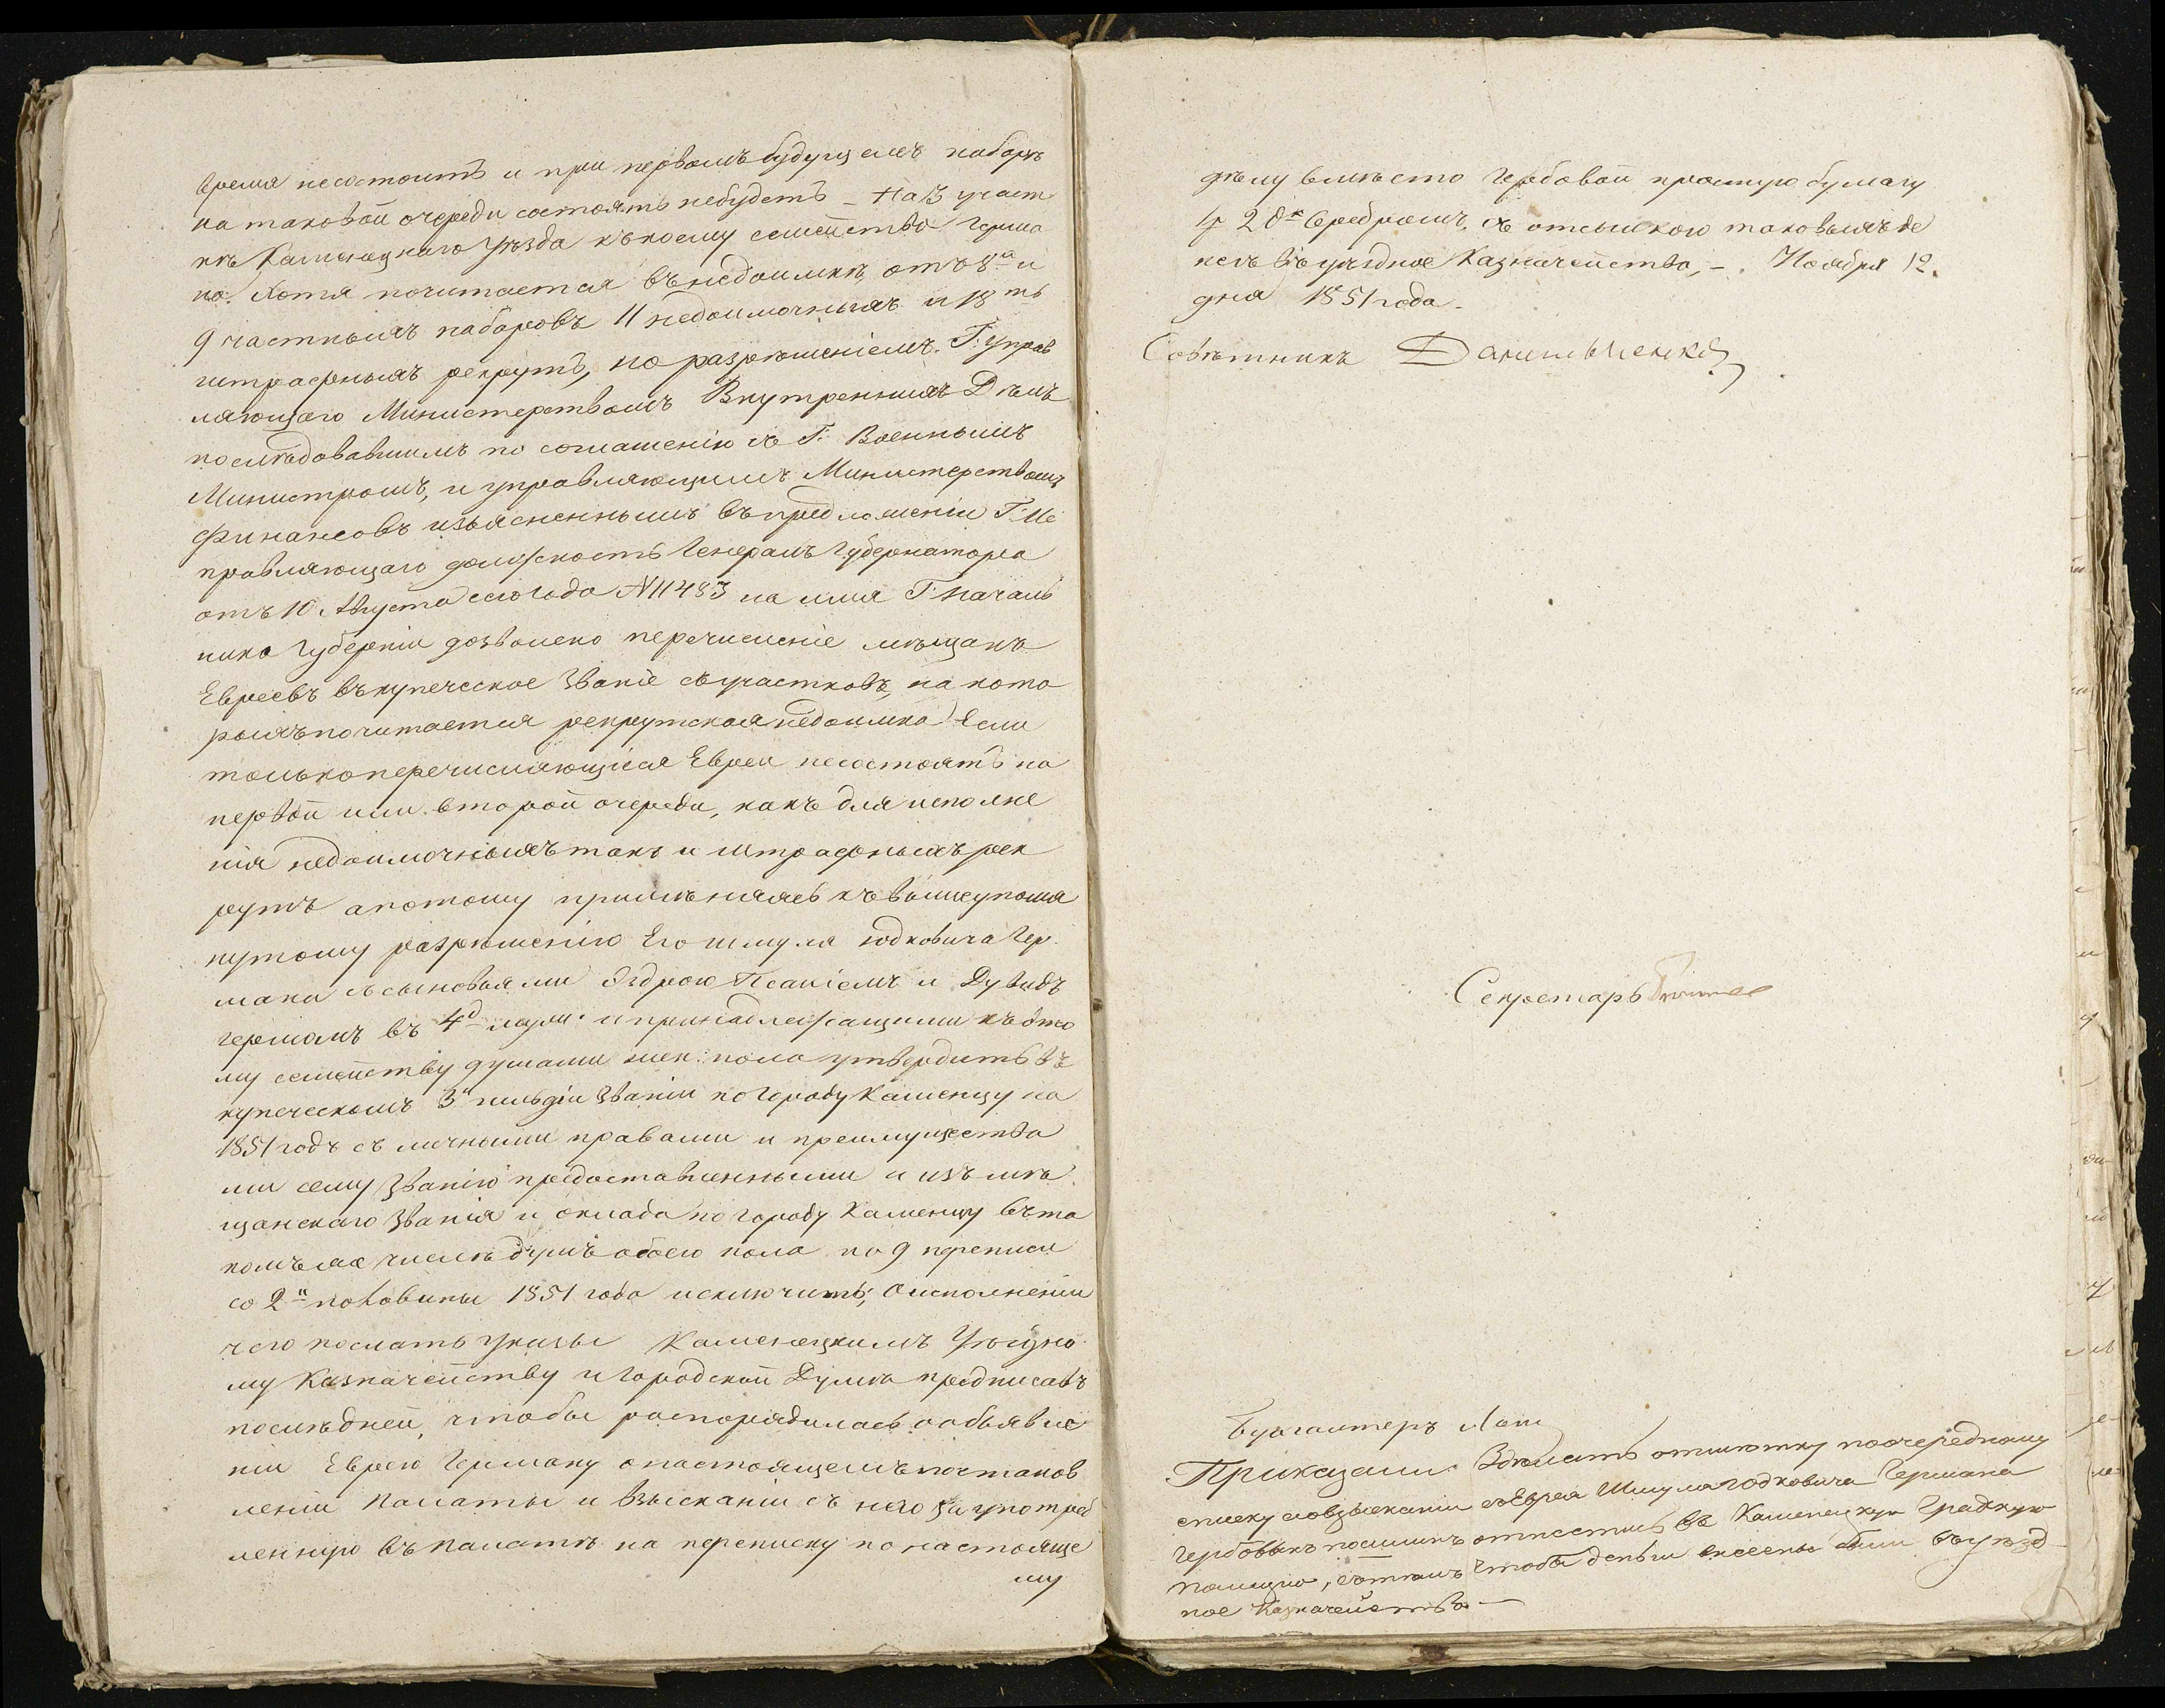 время несостоитъ и при первомъ будущемъ наборѣ
на таковой очереди состоять небудетъ – На 3 участ
кѣ Каменецкаго Уѣзда къ коему семейство Герма
на. Хотя почитается въ недоимкѣ, отъ 8го и
9 частныхъ наборовъ 11 недоимочныхъ и 18ть
штрафныхъ рекрутъ, но разрѣшеніемъ Г: Управ
ляющаго Министерствомъ Внутреннихъ Дѣлъ
послѣдовавшимъ по соглашенію съ Г: Военнымъ
Министромъ, и управляющимъ Министерствомъ
Финансовъ изъясненнымъ въ предложеніи Г: Ис
правляющаго должность Генералъ Губернатора
отъ 10 Августа сего года № 11483 на имя Г: Началь
ника Губерніи дозволено перечисленіе мѣщанъ
Евреевъ въ купеческое званіе съ участковъ, на кото
рыхъ почитается рекрутская недоимка) Если
только перечисляющіеся Евреи несостоятъ на
первой или второй очереди, какъ для исполне
нія недоимочныхъ такъ и штрафныхъ рек
рутъ а потому примѣняясь къ вышеупомя
нутому разрѣшенію Его Шмуля Юдковича Гер
мана съ сыновьями Эздрою Псахіемъ и Дувидъ
Гершомъ въ 4д муж: и принадлежащими къ это
му семейству душами жен: пола утвердить въ
купеческомъ 3й гильдіи званіи по городу Каменцу на
1851 годъ съ личными правами и преимущества
ми сему званію предоставленными и изъ мѣ
щанскаго званія и оклада по городу Каменцу въ та
комъ же числѣ душъ обоего пола по 9 переписи
со 2й половины 1851 года исключить; О исполненіи
чего послать указы Каменецкимъ Уѣздно
му Казначейству и Городской Думѣ предписавъ
послѣдней, чтобы распорядилась о объявле
ніи Еврею Герману о настоящемъ постанов
леніи Палаты и взысканіи съ него за употреб
ленную въ Палатѣ на переписку по настояще
му
дѣлу вмѣсто гербовой простую бумагу
1р 20к Серебромъ, съ отсылкою таковыхъ де
негъ въ уѣздное Казначейство, –. Ноября 12.
дня 1851 года.
Совѣтникъ
Секретарь
Бухгалтеръ
Приказали: Здѣлать отмѣтку по очередному
списку о взысканіи съ Еврея Шмуля Юдковича Германа
гербовыхъ пошлинъ отнестись въ Каменецкую Градскую
Полицію, съ тѣмъ чтобы деньги внесены были въ уѣзд
ное Казначейство –